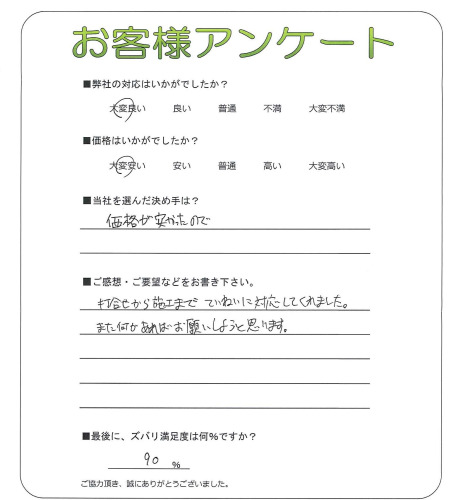 お客様アンケート
■弊社の対応はいかがでしたか？
大変良い 良い 普通 不満 大変不満
■価格はいかがでしたか？
大変安い 安い 普通 高い 大変高い
■当社を選んだ決め手は？
価格が安かったので
■ご感想・ご要望などをお書き下さい。
打合せから施工まで ていねいに対応してくれました。
また何かあればお願いしようと思います。
■最後に、ズバリ満足度は何%ですか？
90 %
ご協力頂き、誠にありがとうございました。